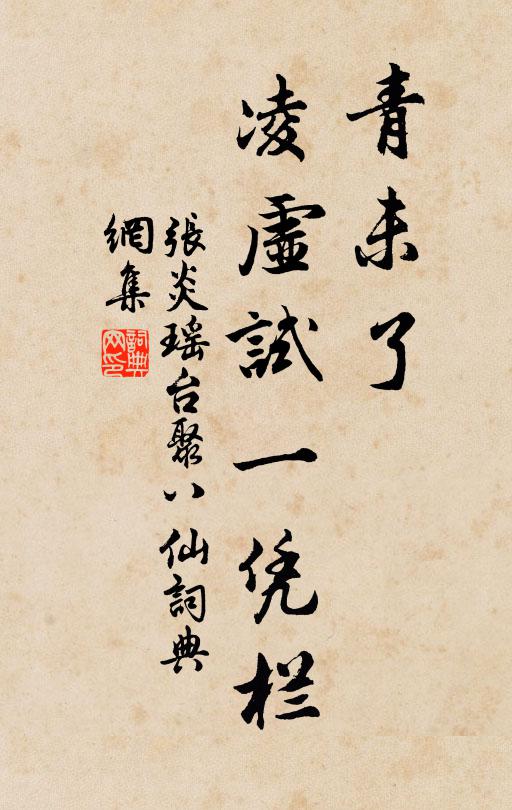 青未了
凌虛試一凭栏
張炎瑶台聚八仙詞典
網集
詞典网印